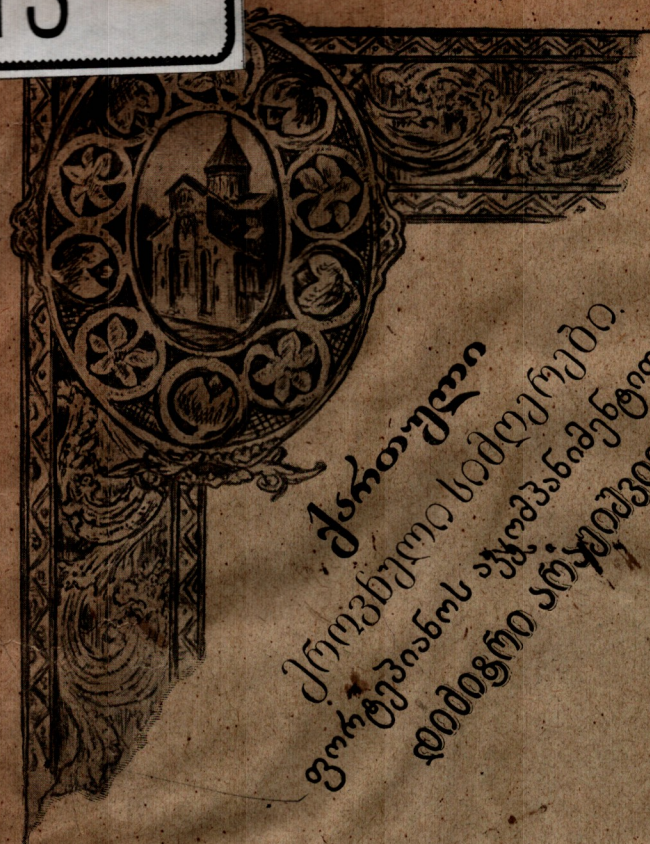 ქართული
ეროვნული სიმღერები.
ფორტეპიანოს აკკომპანიმენტით
დიმიტრი არაყიშვილი